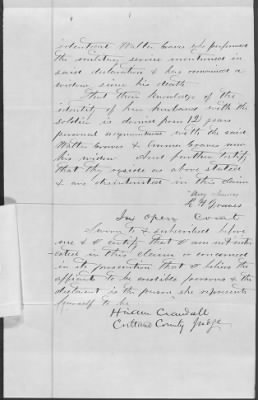 identical Walter Eaves who performed
the military service mentioned in
said declaration & has remained a
widow since his death
That their knowledge of the
identity of her husband with the
soldier is derived from 12 years
personal acquaintance with the said
Walter Eaves & Emma Eaves now
his widow And further testify
that they reside as above stated
& are disinterested in this claim
R H Graves
In Open Court
Sworn to & subscribed before
me & I certify that I am not inter
ested in this claim or concerned
in its prosecution that I believe the
affiants to be credible persons & the
declarant is the person she represents
himself to be
Hiram Crandall
County Judge